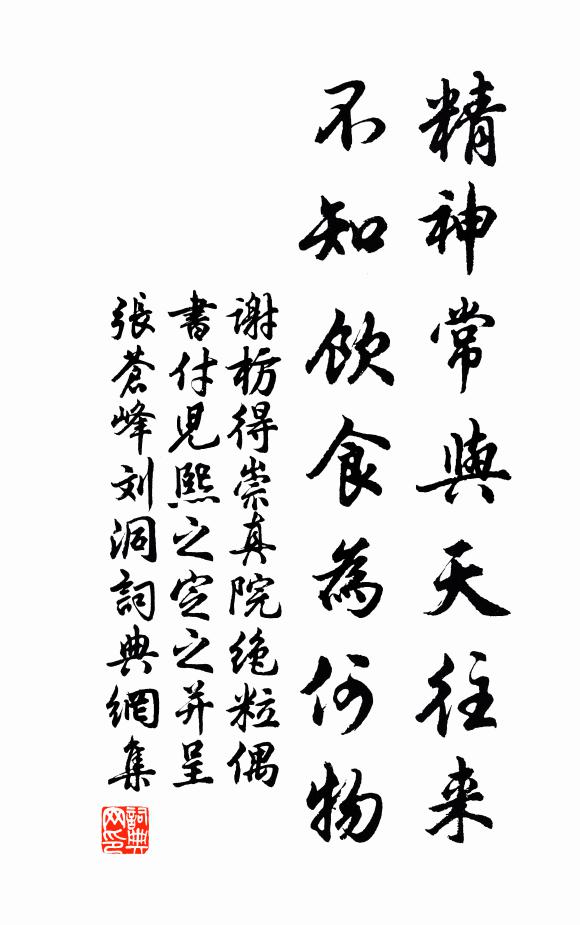 精神常與天往来
不知飲食為何物
谢枋得崇真院绝粒偶
書付児熙之定之并呈
張蒼峰刘洞詞典網集
詞典
网印